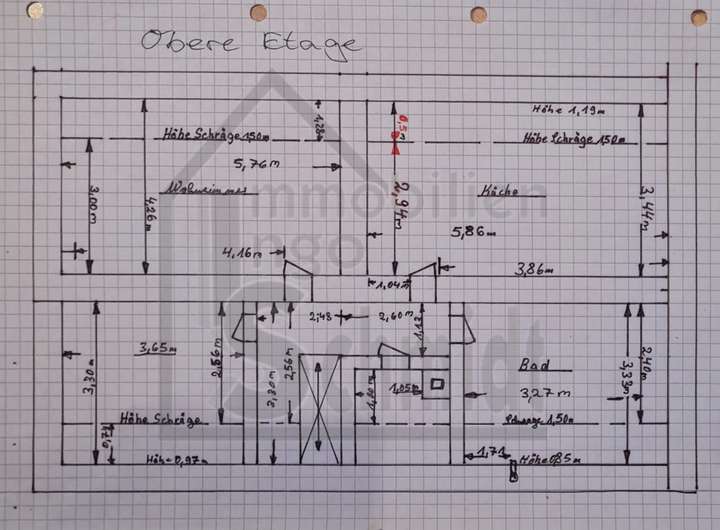 Obere Etage
Höhe 1,19m
1,28m
0,5
Höhe Schräge 1,50m
Höhe Schräge 1,50m
5,76m
Wohnzimmer
Küche
3,00m
4,26m
2,94m
3,44m
5,86m
4,16m
3,86m
1,04
2,48
2,60m
1,12
3,65m
2,56m
2,56m
3,30m
3,30m
Bad
3,27m
2,40m
3,33m
1,05m
Höhe Schräge
Schräge 1,50m
0,74
1,71
Höhe 0,97m
Höhe 0,85m
Immobilien
Ingo
Schmidt